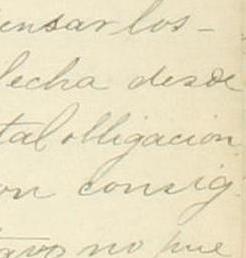 ensar los-
lecha desde
tal obligacion
on consig
tavo no pue